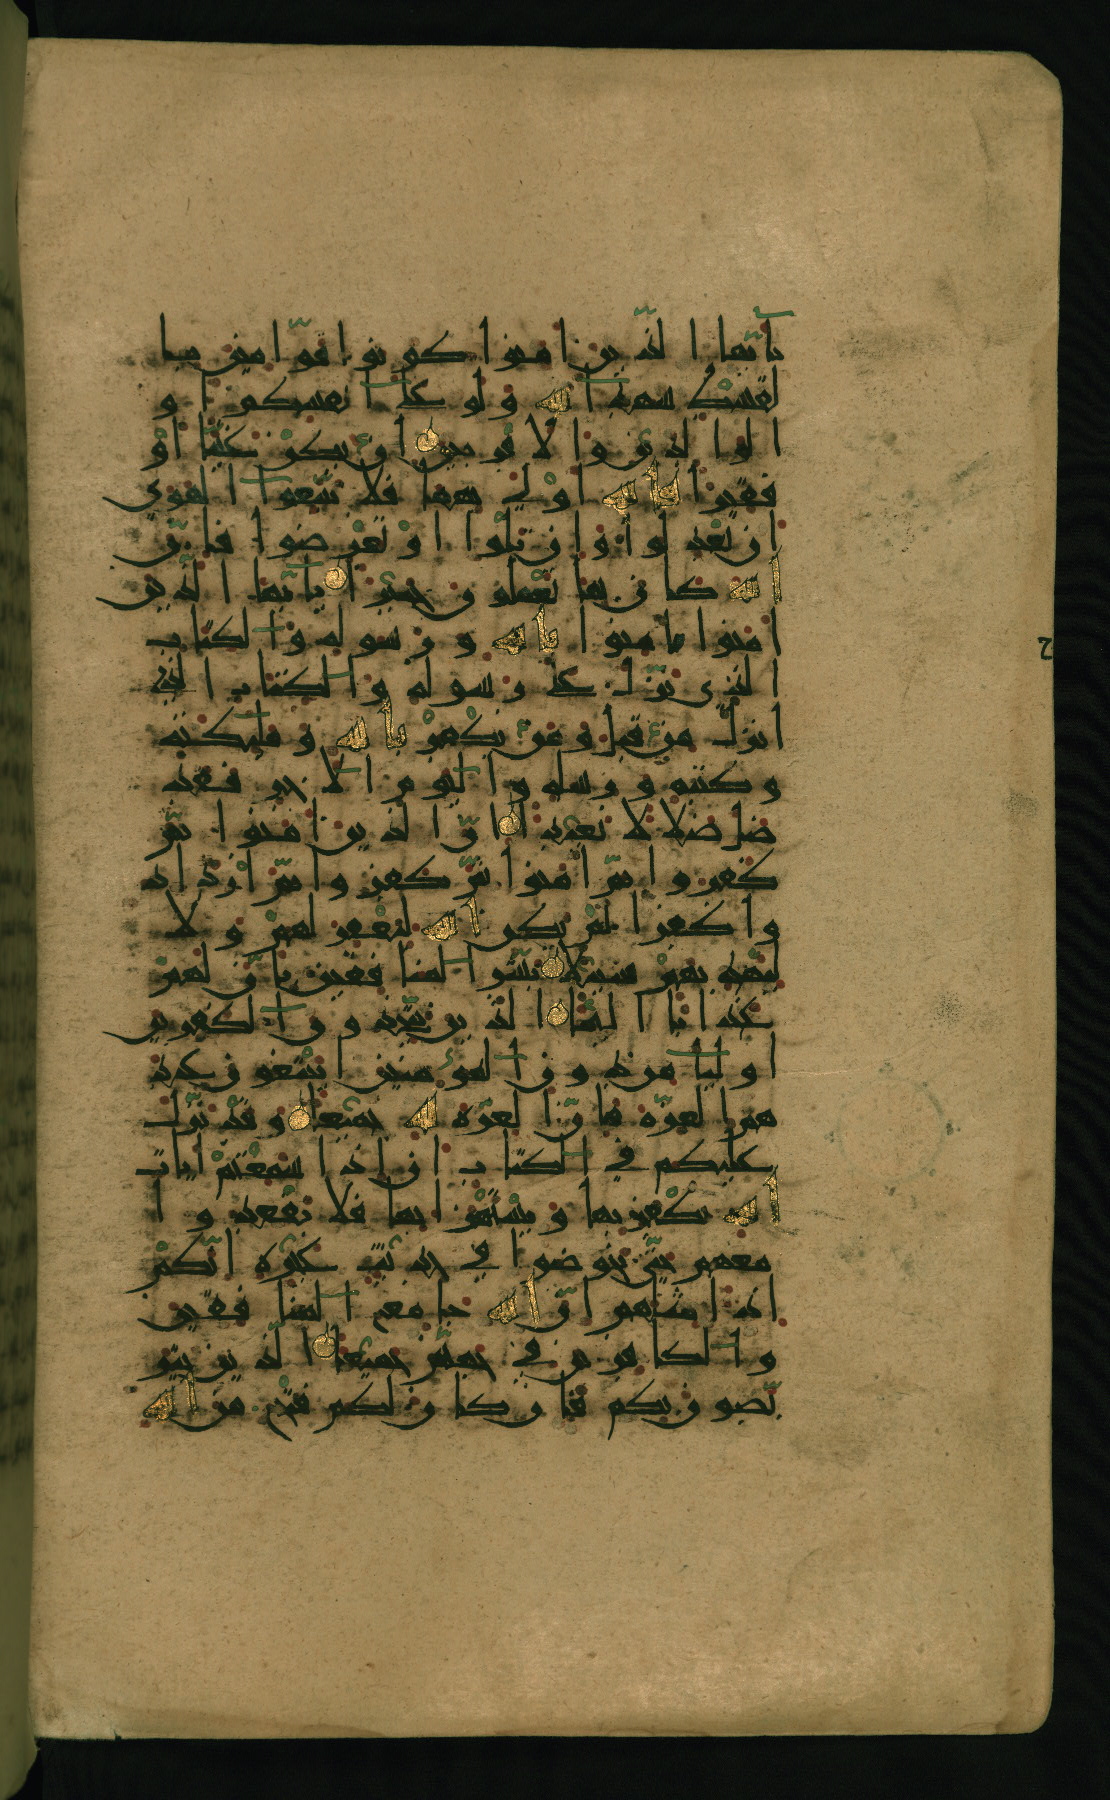 يايها الذين امنوا كونوا قوامين با
لقسط شهدا لله ولو على انفسكم ا و
الوالدين والاقربين ان يكن غنيا او
فقيرا فالله اولى بهما فلا تتبعوا الهوى
ان تعدلوا وان تلوا او تعرضوا فان
الله كان بما تعملون خبيرا يايها الذين
امنوا امنوا بالله ورسوله والكتاب
الذي نزل على رسوله والكتاب الذي
انزل من قبل ومن يكفر بالله وملئكته
وكتبه ورسله واليوم الاخر فقد
ضل ضلالا بعيدا ان الذين امنوا ثم
كفروا ثم امنوا ثم كفروا ثم ازداد
وا كفرا لم يكن الله ليغفر لهم ولا
ليهديهم سبيلا بشر المنفقين بان لهم
عذابا اليما الذين يتخذون الكفرين
اوليا من دون المؤمنين ايبتغون عند
هم العزة فان العزة لله جميعا وقد نزل
عليكم في الكتاب ان اذا سمعتم ايات
الله يكفر بها ويستهزا بها فلا تقعدوا
معهم حتى يخوضوا في حديث غيره انكم
اذا مثلهم ان الله جامع المنفقين
والكافرين في جهنم جميعا الذين يتر
بصون بكم فان كان لكم فتح من الله
ح